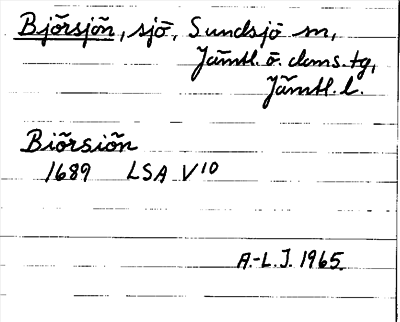 Björsjön, sjö, Sundsjö sn,
Jämtl. ö. doms.tg,
Jämtl. l.
Biörsiön
1689 LSA V10
A.-L.J. 1965.